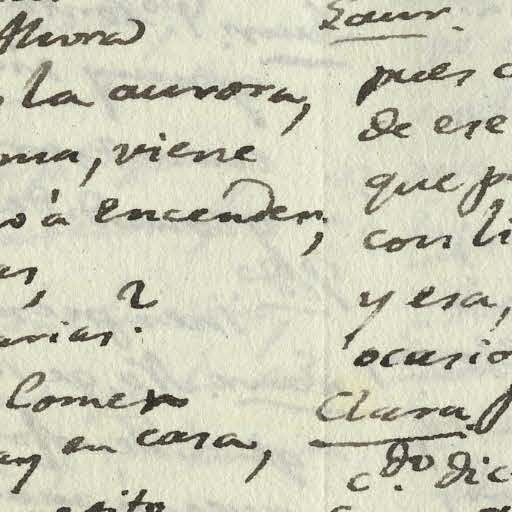 Aurora
la aurora,
viene
à encender,
as,
arias.
Comer
en casa,
Laur.
pues
de ese
que
con
y esa,
ocasio
Clara.
c do dic